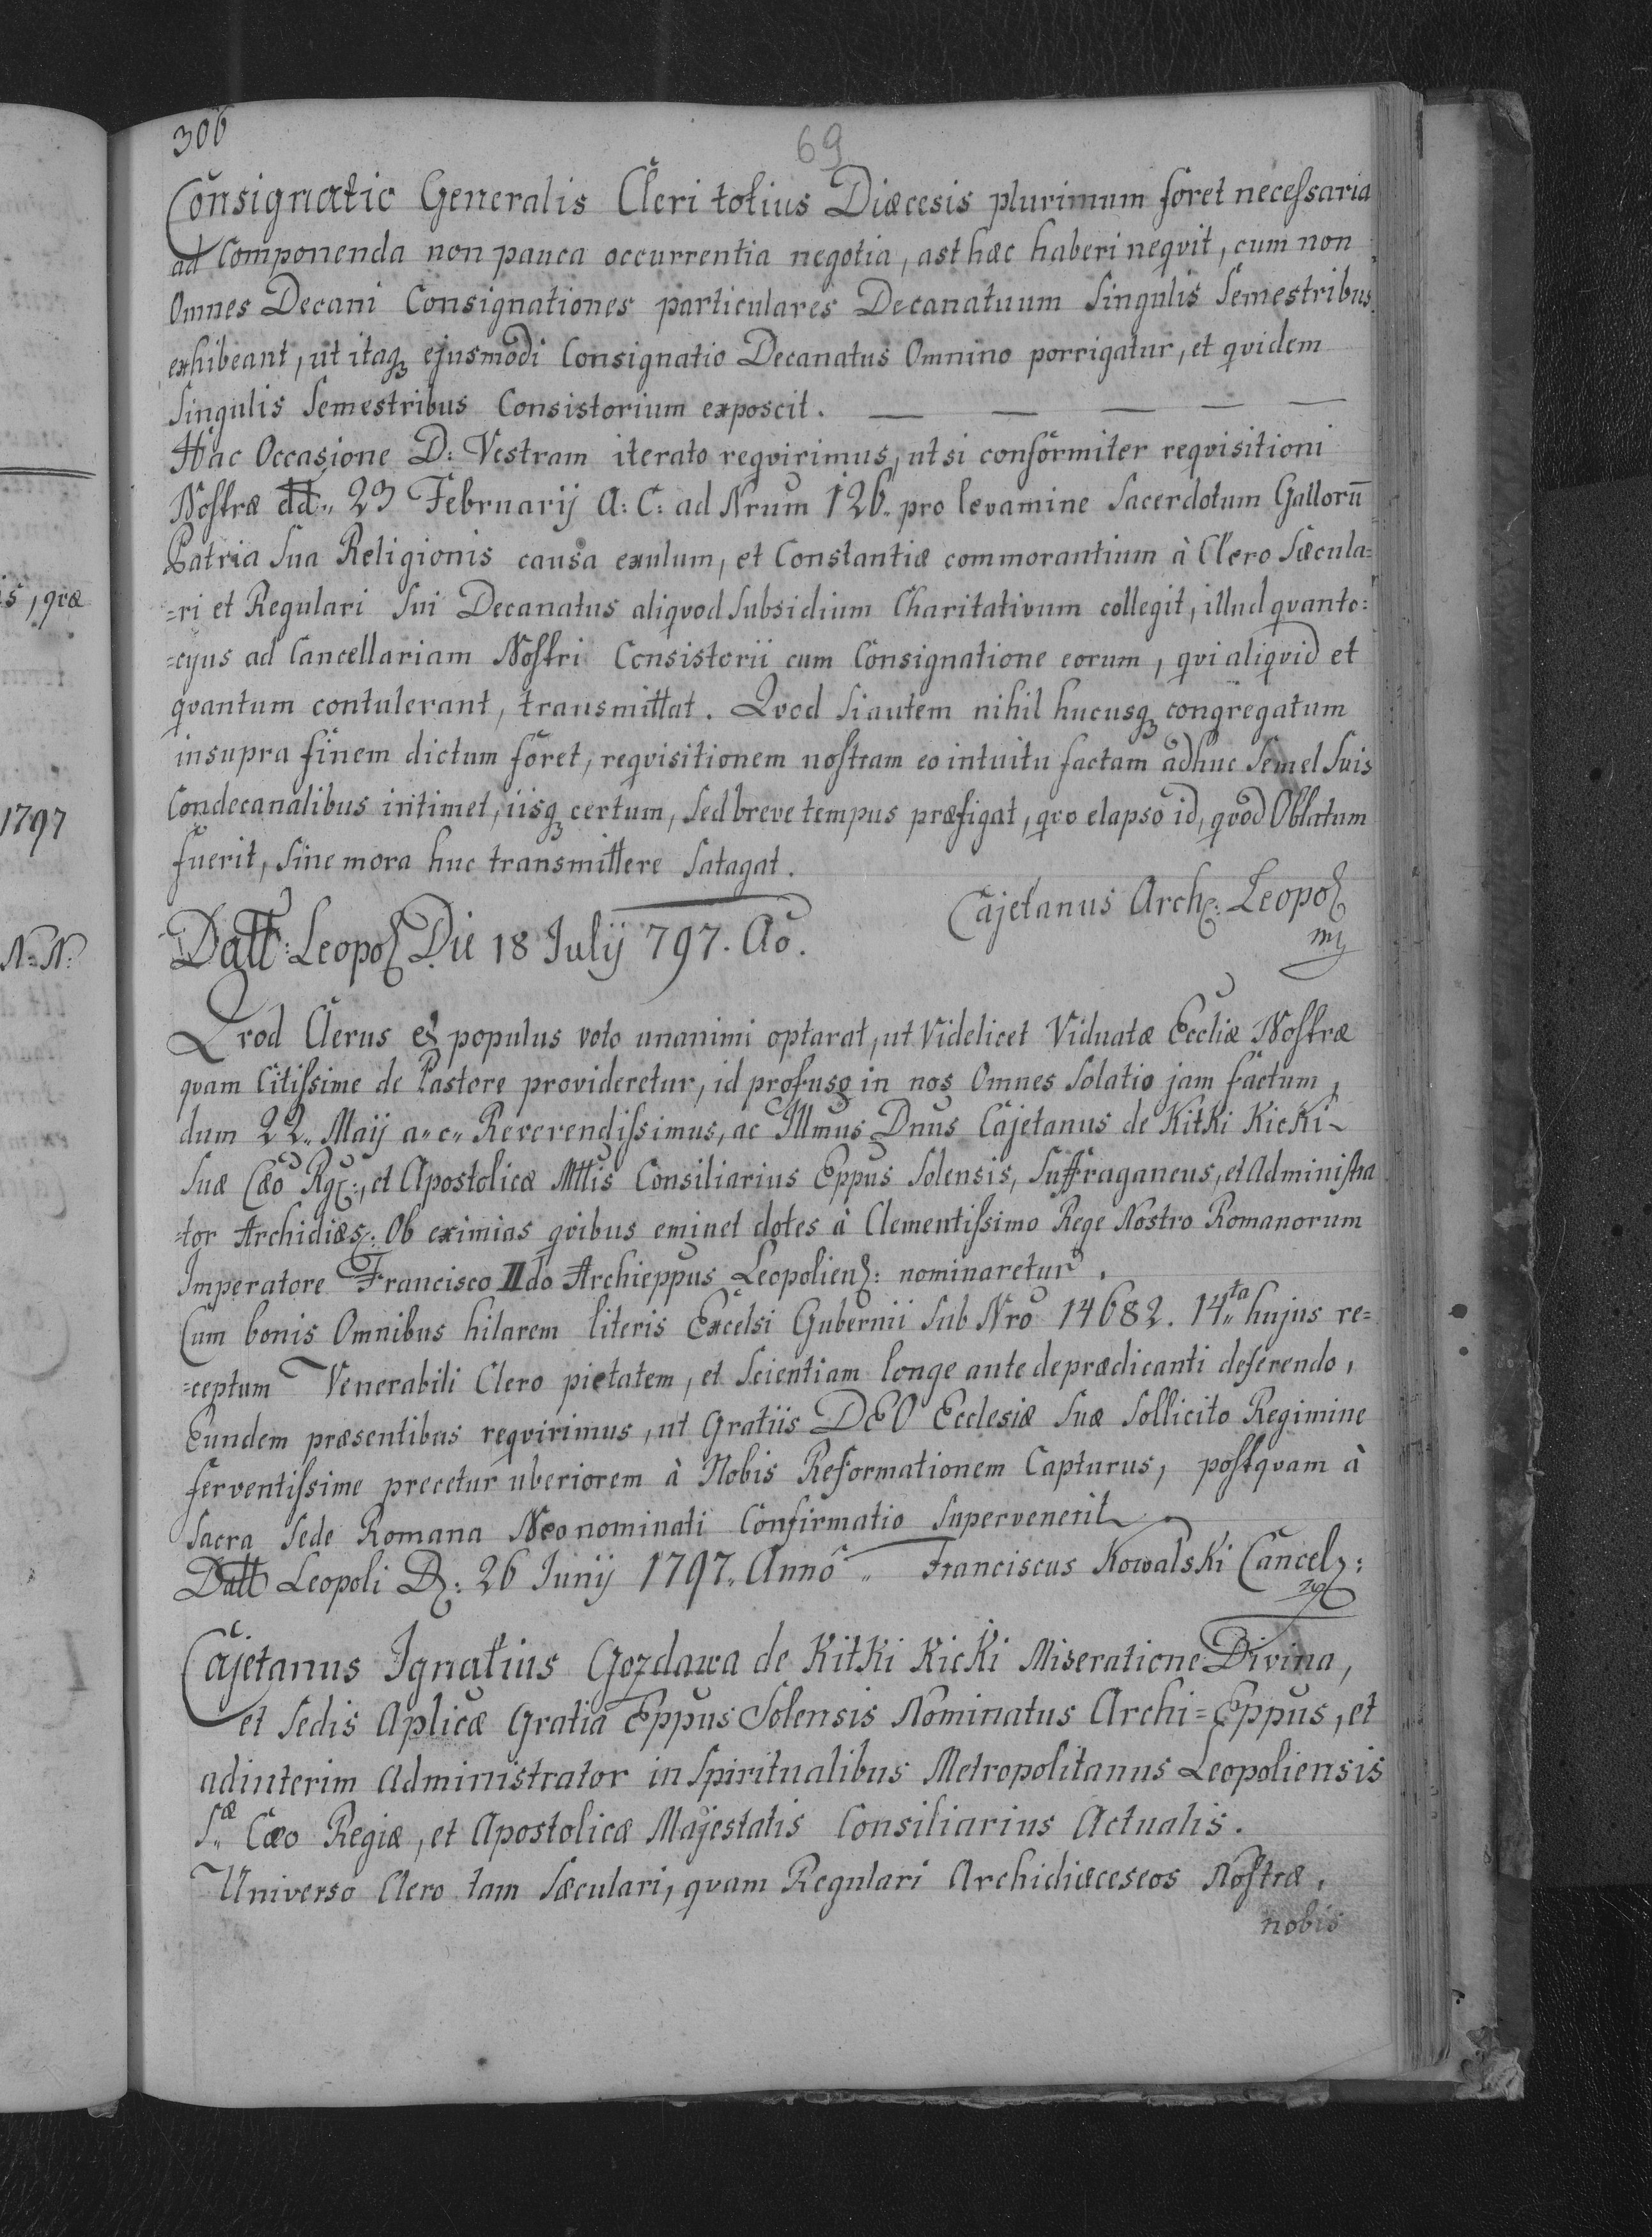 306
69
Consignatio Generalis Cleri totius Diæcesis plurimum foret necessaria
ad Componenda non pauca occurrentia negotia, ast hæc haberi neqvit, cum non
Omnes Decani Consignationes particulares Decanatuum Singulis Semestribus
exhibeant, ut itaqꝫ ejusmodi Consignatio Decanatus Omnino porrigatur, et qvidem
Singulis Semestribus Consistorium exposcit. — — — — —
Hac Occasione D: Vestram iterato reqvirimus, ut si conformiter reqvisitioni
Nostræ dd: 23 Februarij A: C: ad Nrum 126. pro levamine Sacerdotum Gallorū
Patria Sua Religionis causa exulum, et Constantiæ commorantium à Clero Sæcula=
=ri et Regulari Sui Decanatus aliqvod Subsidium Charitativum collegit, illud qvanto=
=cyus ad Cancellariam Nostri Consistorii cum Consignatione eorum, qvi aliqvid et
qvantum contulerant, transmittat. Qvod Si autem nihil hucusqꝫ congregatum
in supra finem dictum foret, reqvisitionem nostram eo intuitu factam adhuc Semel Suis
Condecanalibus intimet, iisqꝫ certum, Sed breve tempus præfigat, qvo elapso id, qvod Oblatum
fuerit, Sine mora huc transmittere Satagat.
Cajetanus Arch: Leopol
mp
Datt: Leopol Die 18 Julij 797. Ao.
Qvod Clerus et populus voto unanimi optarat, ut Videlicet Viduatæ Eccliæ Nostræ
qvam Citissime de Pastore provideretur, id profuso in nos Omnes Solatio jam factum,
dum 22" Maij a" c" Reverendissimus, ac Illmus Dnus Cajetanus de Kitki Kicki
Suæ Cæo Rg:, et Apostolicæ Mttis Consiliarius Eppus Solensis, Suffraganeus, et Administra
=tor Archidiæs: Ob eximias qvibus eminet dotes à Clementissimo Rege Nostro Romanorum
Imperatore Francisco IIdo Archieppus Leopolien: nominaretur.
Cum bonis Omnibus hilarem literis Excelsi Gubernii Sub Nro 14682. 14"ta hujus re=
=ceptum Venerabili Clero pietatem, et Scientiam longe ante deprædicanti deferendo,
Eundem præsentibus reqvirimus, ut Gratiis DEO Ecclesiæ Suæ Sollicito Regimine
ferventissime precetur uberiorem à Nobis Reformationem Capturus, postqvam à
Sacra Sede Romana Neonominati Confirmatio Supervenerit
Datt Leopoli D: 26 Junij 1797. Anno " Franciscus Kowalski Cancel:
Cajetanus Ignatius Gozdawa de Kitki Kicki Miseratione Divina,
et Sedis Aplicæ Gratia Eppus Solensis Nominatus Archi=Eppus, et
adinterim Administrator in Spiritualibus Metropolitanus Leopoliensis
S"æ Cæo Regiæ, et Apostolicæ Majestatis Consiliarius Actualis.
Universo Clero tam Sæculari, qvam Regulari Archidiæceseos Nostræ,
nobis
is, qvæ
1797
N=N: